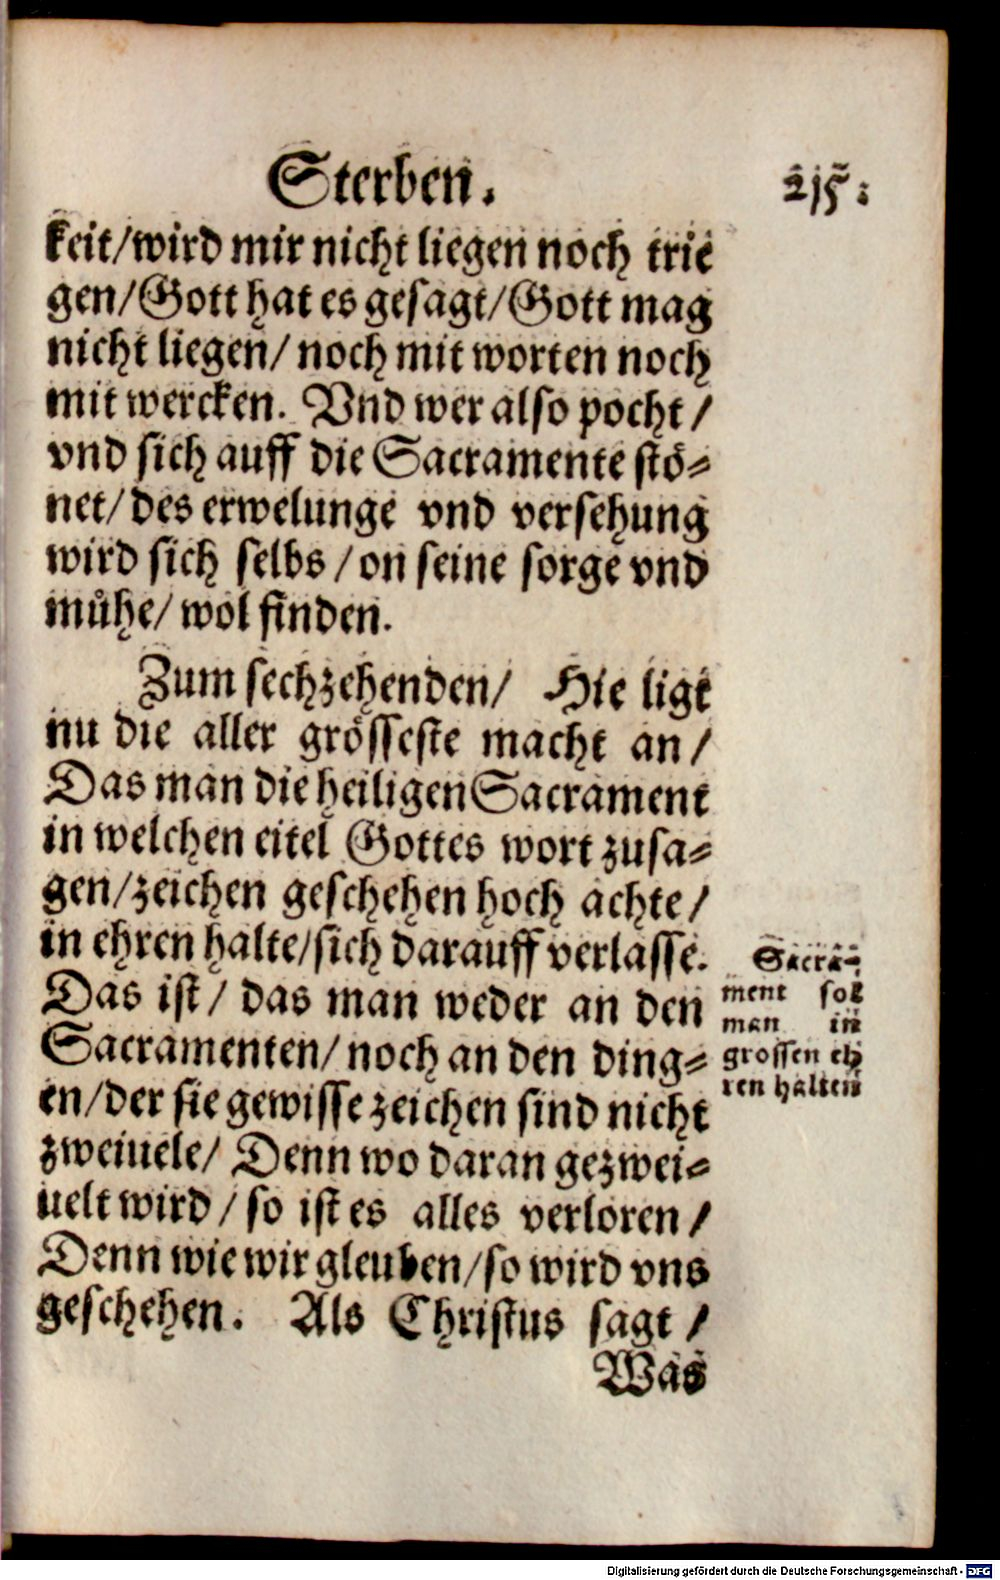 Sterben. 215.
keit/wird mir nicht liegen noch trie
gen/Gott hat es gesagt/Gott mag
nicht liegen/ noch mit worten noch
mit wercken. Vnd wer also pocht/
vnd sich auff die Sacramente stö-
net/des erwelunge vnd versehung
wird sich selbs/on seine sorge vnd
můhe/wol finden.
Zum sechzehenden/ Hie ligt
nu die aller grösseste macht an/
Das man die heiligen Sacrament
in welchen eitel Gottes wort zusa-
gen/zeichen geschehen hoch achte/
in ehren halte/sich darauff verlasse.
Das ist/ das man weder an den
Sacramenten/noch an den ding-
en/der sie gewisse zeichen sind nicht
zweiuele/ Denn wo daran gezwei-
uelt wird/so ist es alles verloren/
Denn wie wir gleuben/so wird vns
geschehen. Als Christus sagt/
Was
Sacra-
ment sol
man in
grossen eh
ren halten
Digitalisierung gefördert durch die Deutsche Forschungsgemeinschaft - DFG